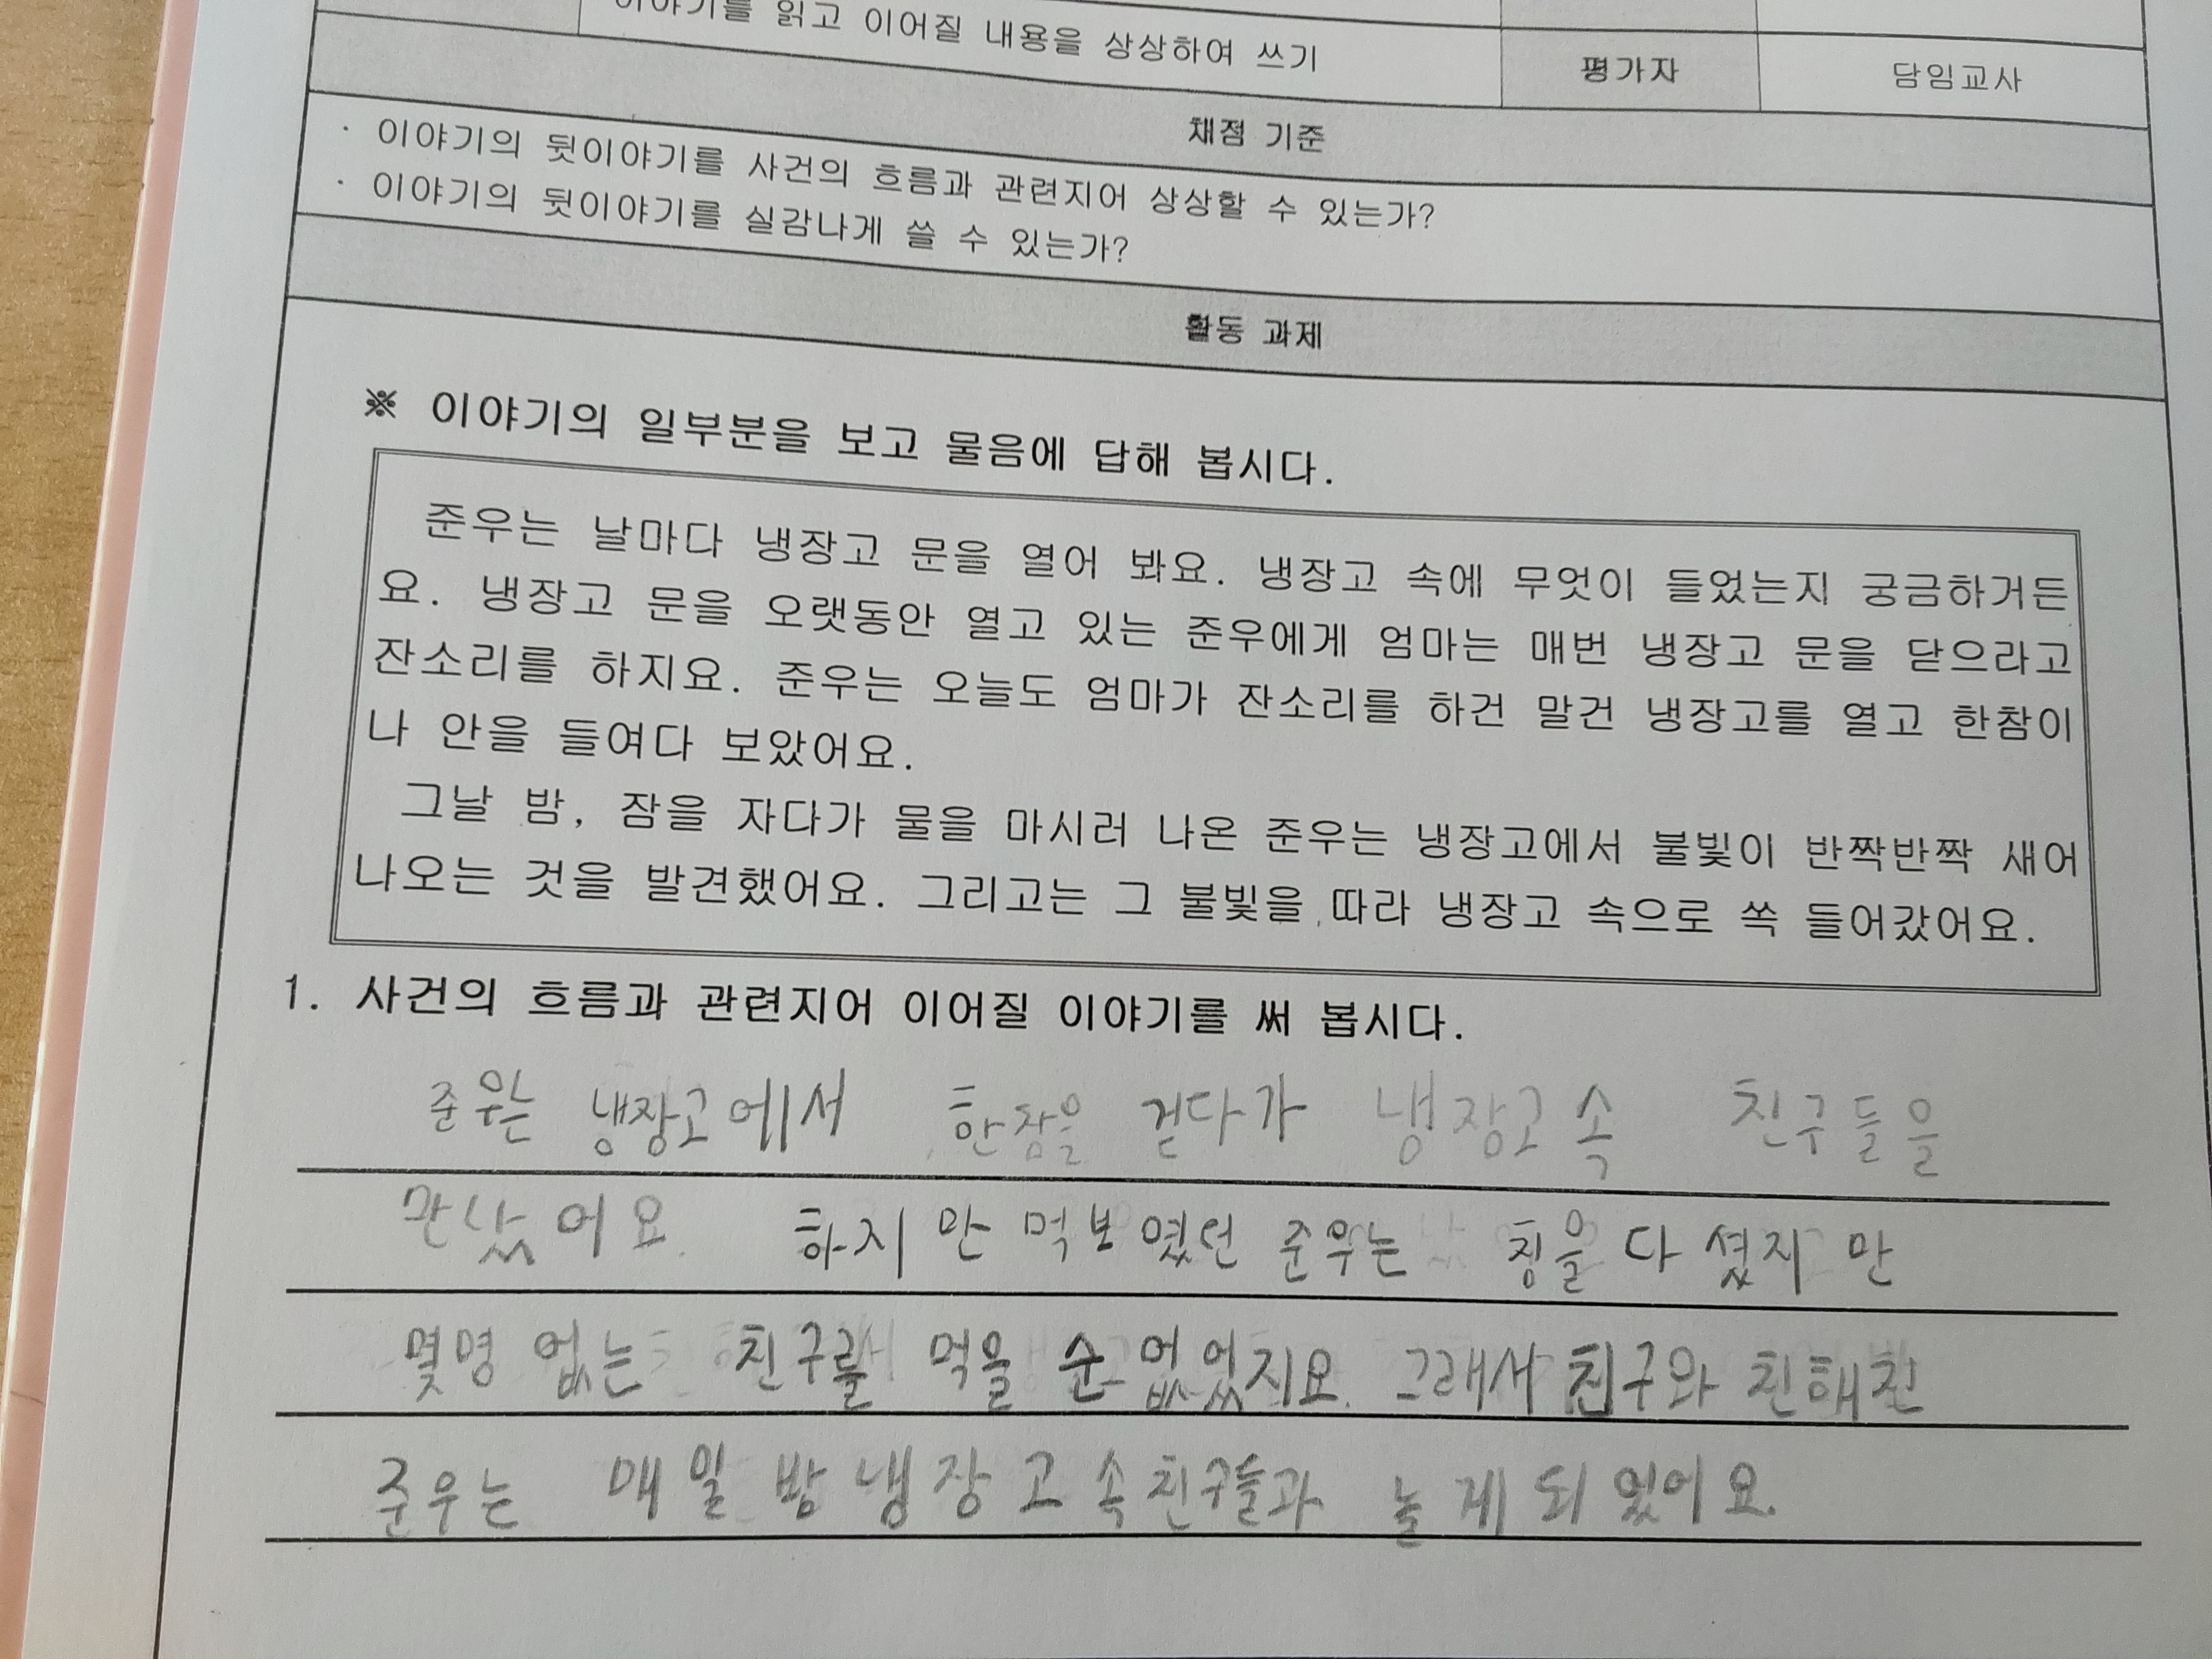 이야기를 읽고 이어질 내용을 상상하여 쓰기
평가자
담임교사
채점 기준
· 이야기의 뒷이야기를 사건의 흐름과 관련지어 상상할 수 있는가?
· 이야기의 뒷이야기를 실감나게 쓸 수 있는가?
활동 과제
※ 이야기의 일부분을 보고 물음에 답해 봅시다.
준우는 날마다 냉장고 문을 열어 봐요. 냉장고 속에 무엇이 들었는지 궁금하거든
요. 냉장고 문을 오랫동안 열고 있는 준우에게 엄마는 매번 냉장고 문을 닫으라고
잔소리를 하지요. 준우는 오늘도 엄마가 잔소리를 하건 말건 냉장고를 열고 한참이
나 안을 들여다 보았어요.
그날 밤, 잠을 자다가 물을 마시러 나온 준우는 냉장고에서 불빛이 반짝반짝 새어
나오는 것을 발견했어요. 그리고는 그 불빛을 따라 냉장고 속으로 쏙 들어갔어요.
1. 사건의 흐름과 관련지어 이어질 이야기를 써 봅시다.
준우는 냉장고에서 한참을 걷다가 냉장고 속 친구들을
만났어요. 하지만 먹보였던 준우는 침을 다셨지만
몇명 없는 친구를 먹을 순 없었지요. 그래서 친구와 친해진
준우는 매일 밤 냉장고 속 친구들과 놀게 되었어요.